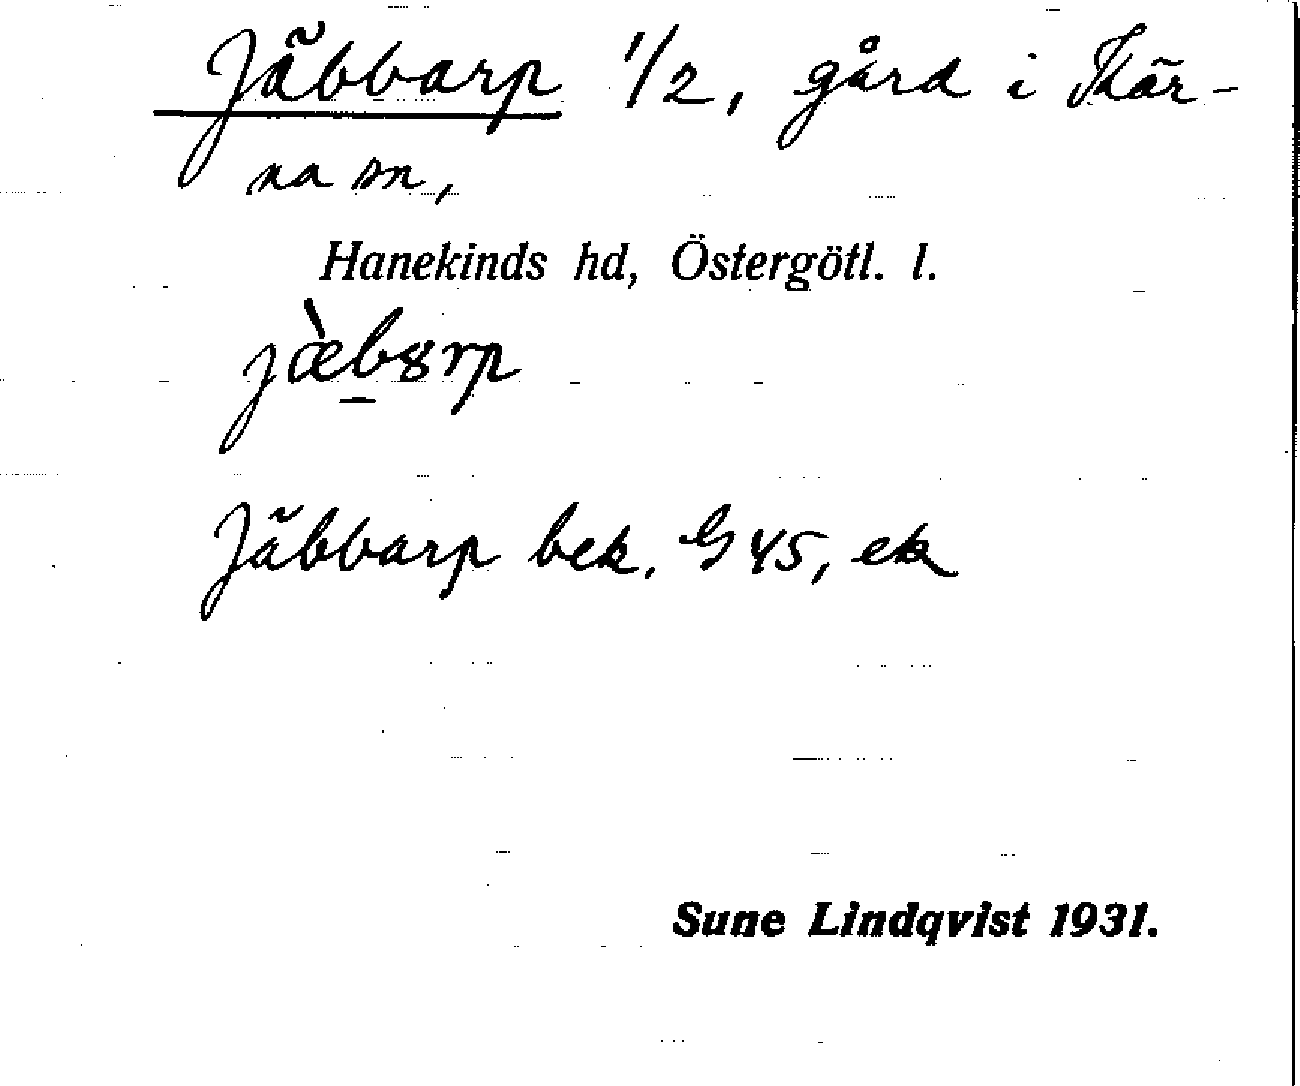 Jäbbarp 1/2, gård i Kär-
na sn,
Hanekinds hd, Östergötl. l.
jæ̀b̲ȣrp
Jäbbarp bek. G 45, ek
Sune Lindqvist 1931.